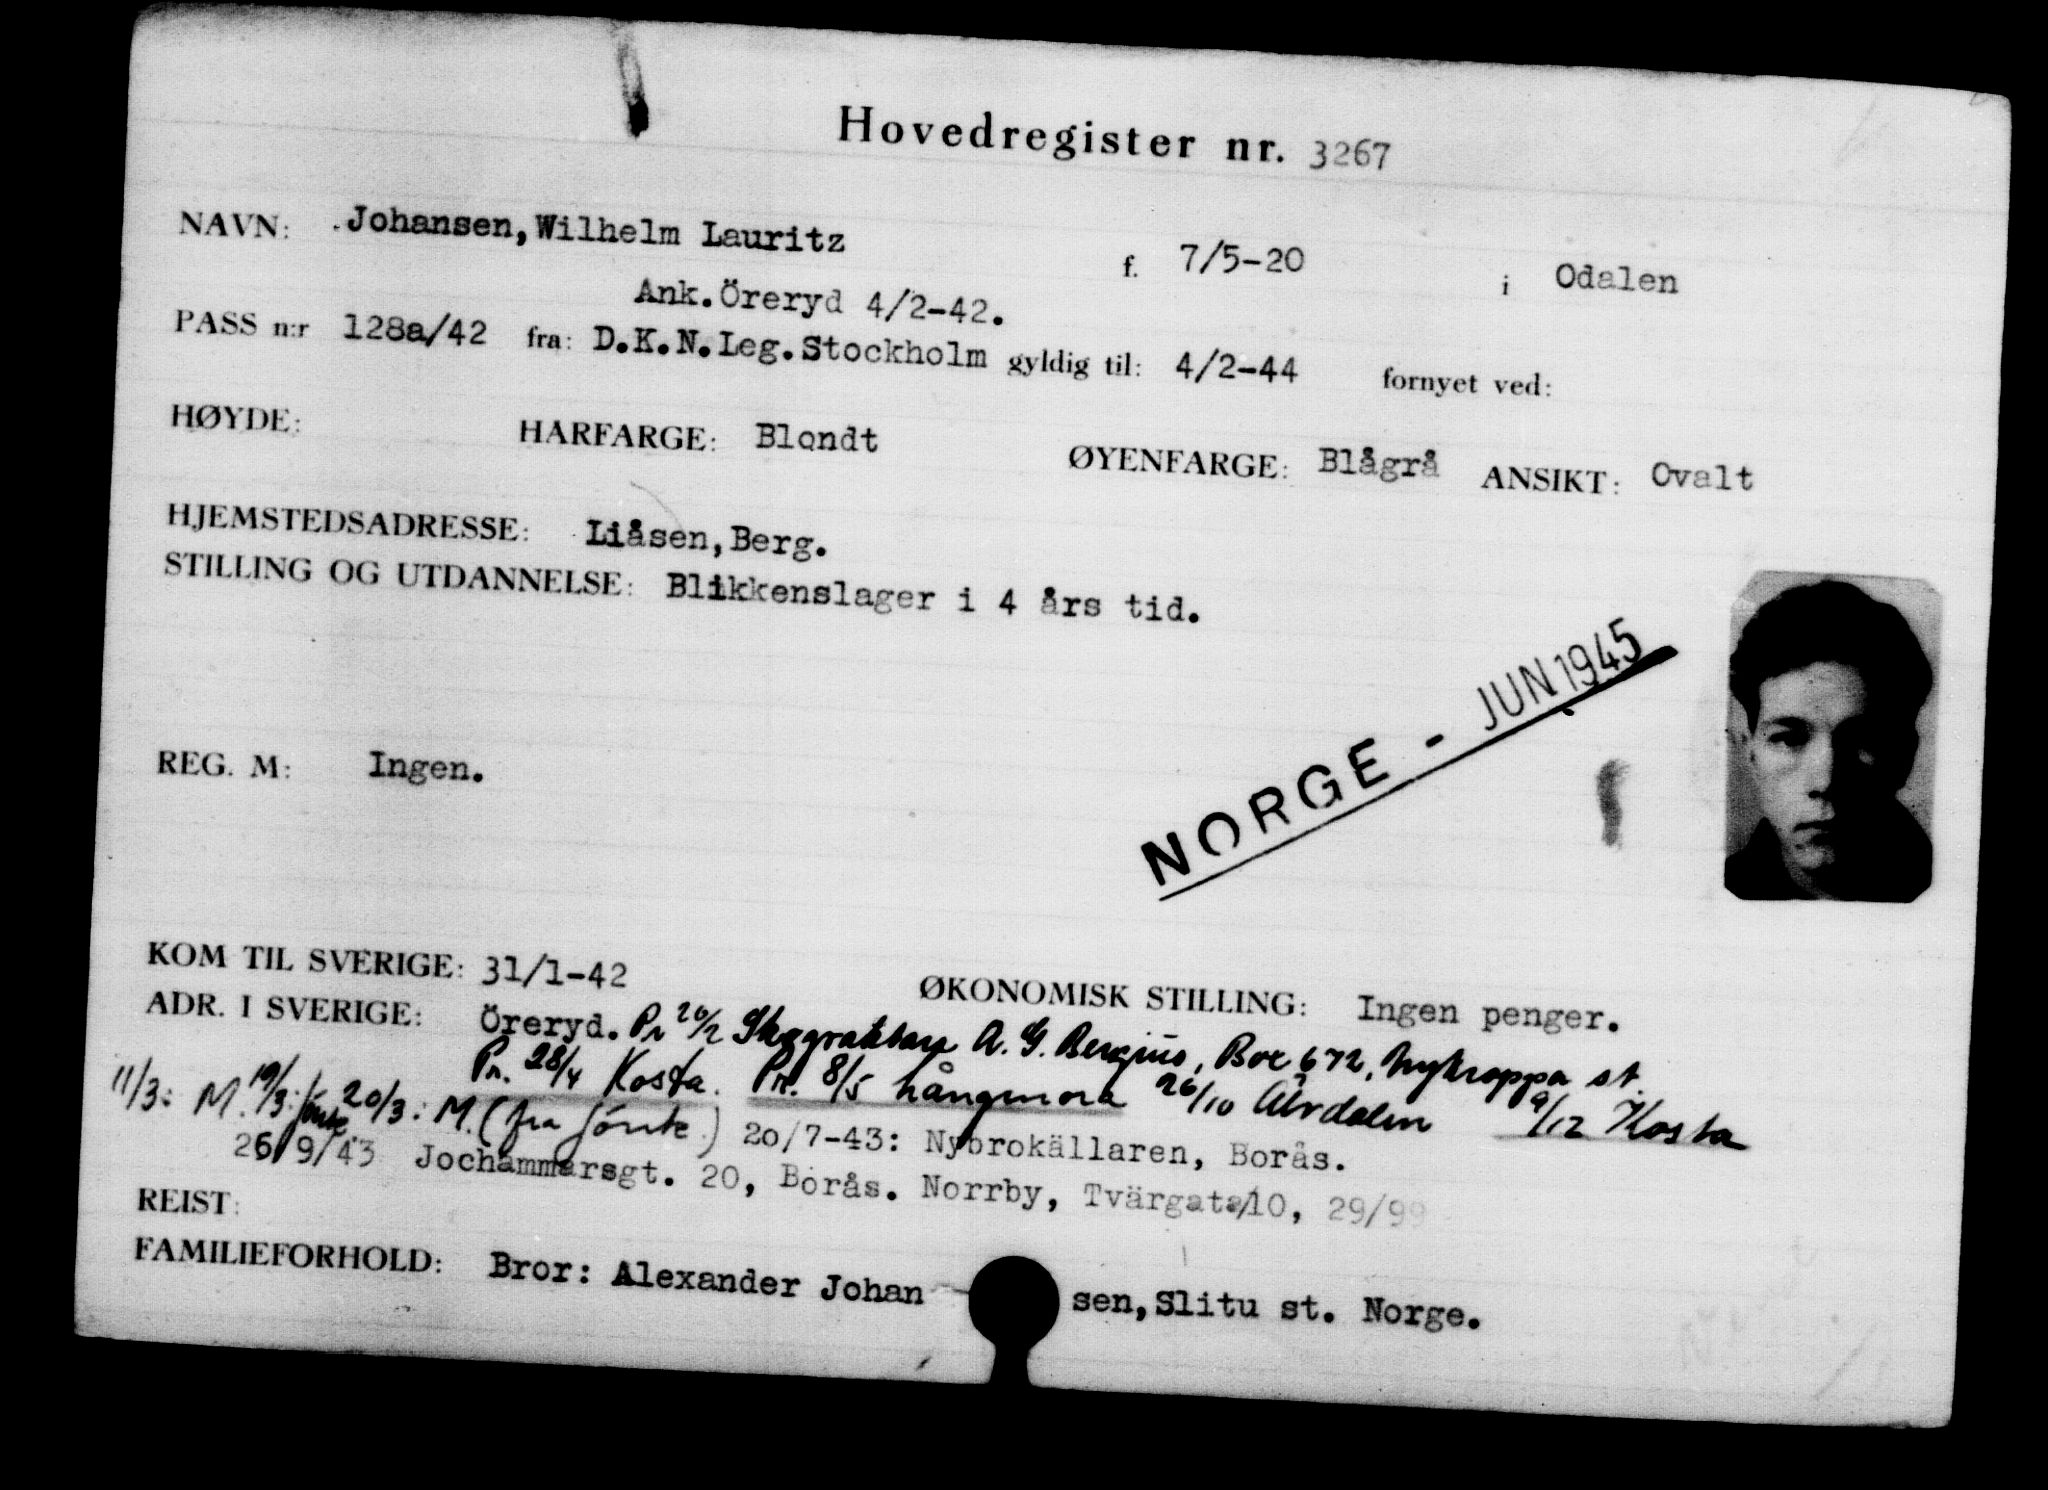 Hovedregister nr. 3267
NAVN: Johansen, Wilhelm Lauritz f. 7/5-20 i Odalen
Ank. Öreryd 4/2-42.
PASS n:r 128a/42 fra: D.K.N.Leg.Stockholm gyldig til: 4/2-44 fornyet ved:
HØYDE: HARFARGE: Blondt ØYENFARGE: Blågrå ANSIKT: Ovalt
HJEMSTEDSADRESSE: Liåsen, Berg.
STILLING OG UTDANNELSE: Blikkenslager i 4 års tid.
NORGE - JUN 1945
REG. M: Ingen.
KOM TIL SVERIGE: 31/1-42 ØKONOMISK STILLING: Ingen penger.
ADR. I SVERIGE: Öreryd. Pr 20/2 A. G. Bergius, Box 672, Nykroppa st.
Pr. 28/4 Kosta. Pr. 8/5 Långmora 26/10 Älvdalen 9/12 Kosta
11/3: M. 19/3: 20/3: M. (fra ) 20/7-43: Nybrokällaren, Borås.
26/9/43 Jochammarsgt. 20, Borås. Norrby, Tvärgata 10, 29/99
REIST:
FAMILIEFORHOLD: Bror: Alexander Johan sen, Slitu st. Norge.